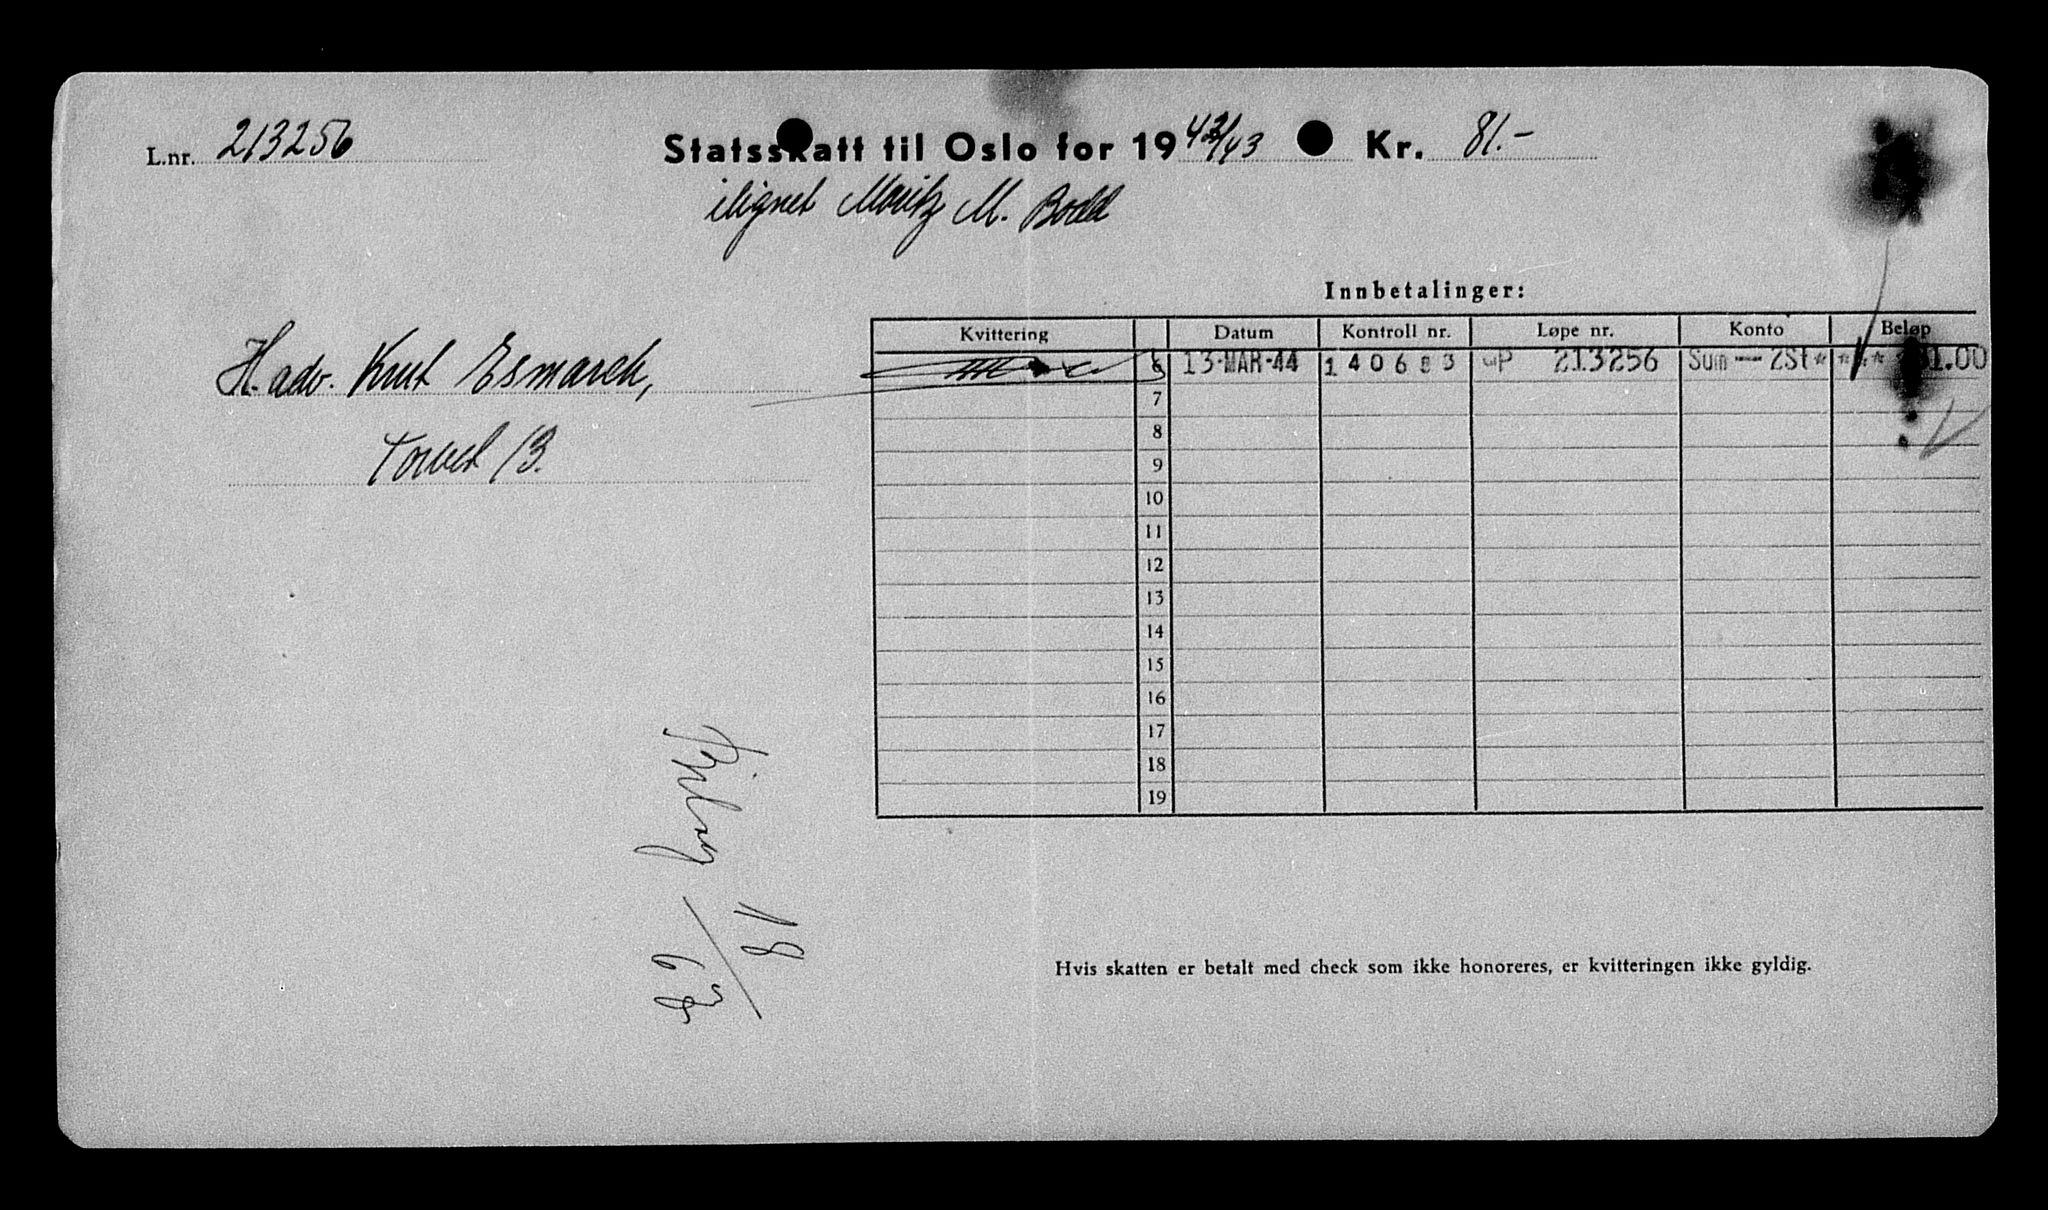 L.nr. 213256 Statsskatt til Oslo for 1942/43 Kr. 81.-
ilignet Moritz M. Bodd
Innbetalinger:
H. adv. Knut Esmarch,
Torvet 13.
Kvittering Datum Kontroll nr. Løpe nr. Konto Beløp
6 13-MAR-44 140683 213256 Sum 2St ☆ ☆☆☆ 81.00
7
8
9
10
11
12
13
14
15
16
17
18
19
Bilag 18/63
Hvis skatten er betalt med check som ikke honoreres, er kvitteringen ikke gyldig.